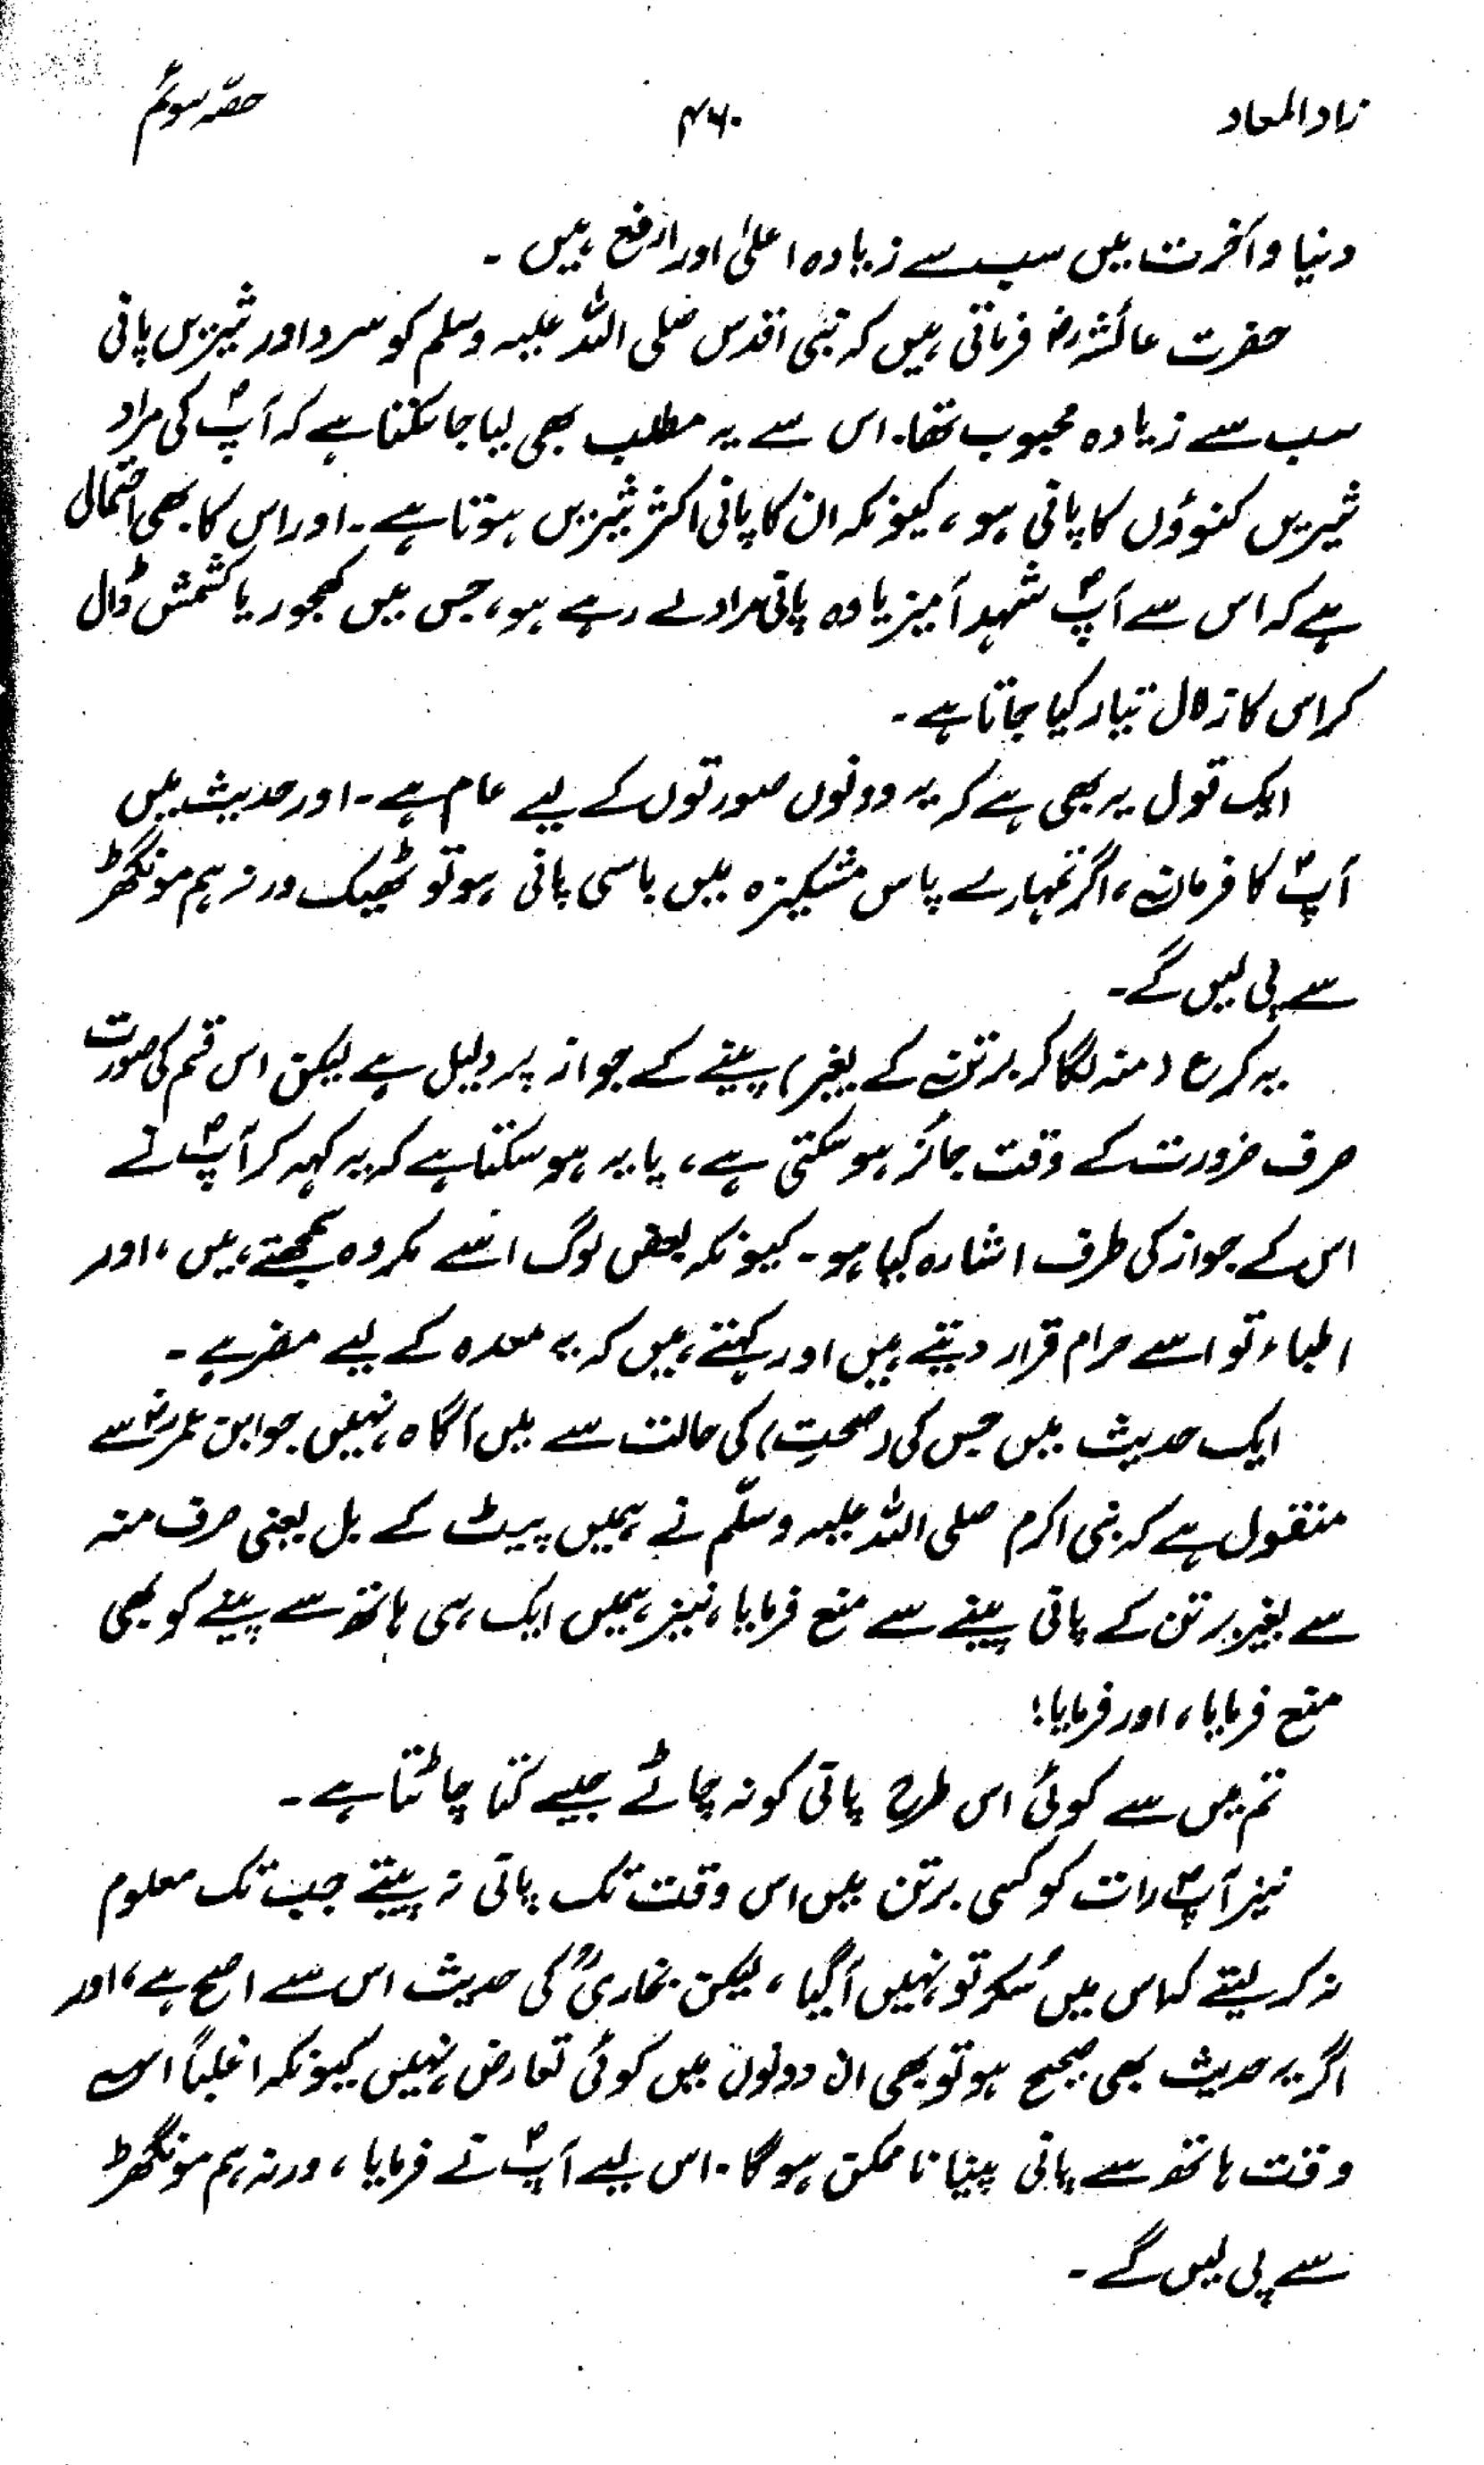 زاد المعاد ۴۶۰ حصّہ سوئم
دنیا و آخرت میں سب سے زیادہ اعلیٰ اور ارفع ہیں ۔
حضرت عائشہ رض فرماتی ہیں کہ نبی اقدس صلی اللہ علیہ وسلم کو سرد اور شیریں پانی
سب سے زیادہ محبوب تھا۔ اس سے یہ مطلب بھی لیا جا سکتا ہے کہ آپؐ کی مراد
شیریں کنوؤں کا پانی ہو ، کیونکہ ان کا پانی اکثر شیریں ہوتا ہے ۔ اور اس کا بھی احتمال
ہے کہ اس سے آپؐ شہد آمیز یا وہ پانی مراد لے رہے ہو، جس میں کھجور یا کشمش ڈال
کر اس کا زلال تیار کیا جاتا ہے ۔
ایک قول یہ بھی ہے کہ یہ دونوں صورتوں کے لیے عام ہے ۔ اور حدیث میں
آپؐ کا فرمان ، اگر تمہارے پاس مشکیزہ میں باسی پانی ہو تو ٹھیک ورنہ ہم مونگھڑ
سے پی لیں گے ۔
یہ کرع (منہ لگا کر برتن کے بغیر) پینے کے جواز پر دلیل ہے لیکن اس قسم کی صورت
صرف ضرورت کے وقت جائز ہو سکتی ہے ، یا یہ ہو سکتا ہے کہ یہ کہہ کر آپؐ نے
اس کے جواز کی طرف اشارہ کیا ہو ۔ کیونکہ بعض لوگ اسے مکروہ سمجھتے ہیں ، اور
اطباء تو اسے حرام قرار دیتے ہیں اور کہتے ہیں کہ یہ معدہ کے لیے مضر ہے ۔
ایک حدیث میں جس کی (صحت) کی حالت سے میں آگاہ نہیں جو ابن عمر رض سے
منقول ہے کہ نبی اکرم صلی اللہ علیہ وسلّم نے ہمیں پیٹ کے بل یعنی صرف منہ
سے بغیر برتن کے پانی پینے سے منع فرمایا ، نیز ہمیں ایک ہی ہاتھ سے پینے کو بھی
منع فرمایا ، اور فرمایا !
تم میں سے کوئی اس طرح پانی کو نہ چاٹے جیسے کتا چاٹتا ہے ۔
نیز آپؐ رات کو کسی برتن میں اس وقت تک پانی نہ پیتے جب تک معلوم
نہ کر لیتے کہ اس میں سُکر تو نہیں آگیا ، لیکن بخاریؒ کی حدیث اس سے اصح ہے ، اور
اگر یہ حدیث بھی صحیح ہو تو بھی ان دونوں میں کوئی تعارض نہیں کیونکہ اغلباً اس
وقت ہاتھ سے پانی پینا نا ممکن ہوگا ۔ اس لیے آپؐ نے فرمایا ، ورنہ ہم مونگھڑ
سے پی لیں گے ۔